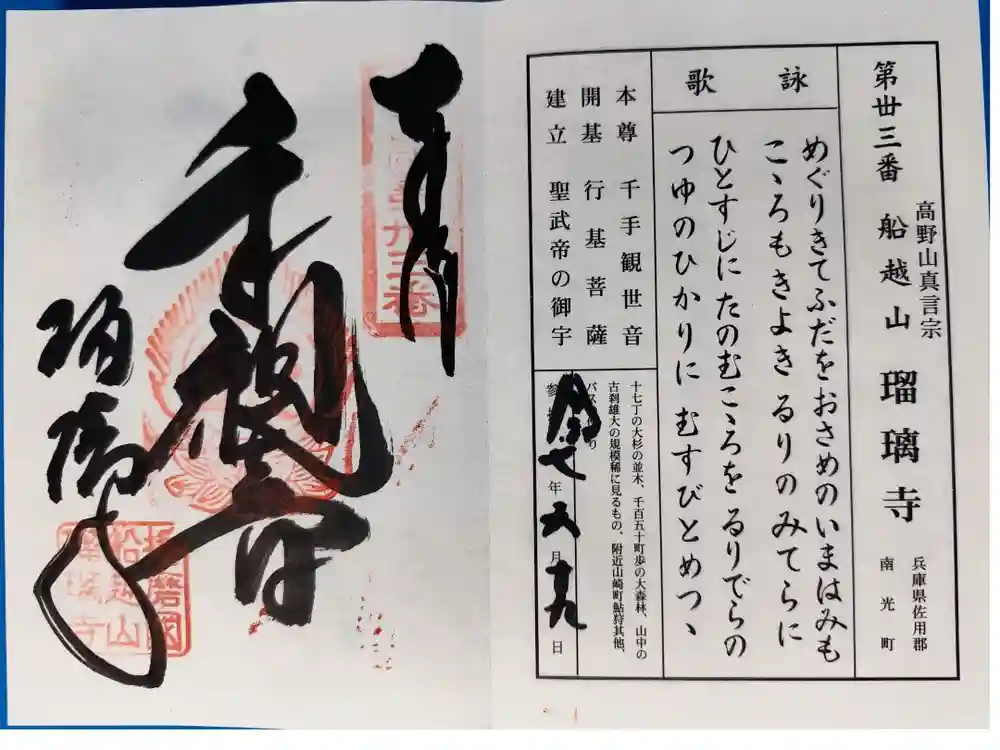 第丗三番 船越山 瑠璃寺
高野山真言宗
兵庫県佐用郡
南光町
詠歌
めぐりきてふだをおさめのいまはみも
こゝろもきよき るりのみてらに
ひとすじにたのむこゝろを るりでらの
つゆのひかりに むすびとめつゝ
本尊 千手観世音
開基 行基菩薩
建立 聖武帝の御宇
十七丁の大杉の並木、千百五十町歩の大森林、山中の
古刹雄大の規模稀に見るもの、附近山崎町鮎狩其他、
年 月 十九 日
奉拝
千手観音
瑠璃寺
播磨國
船越山
瑠璃寺